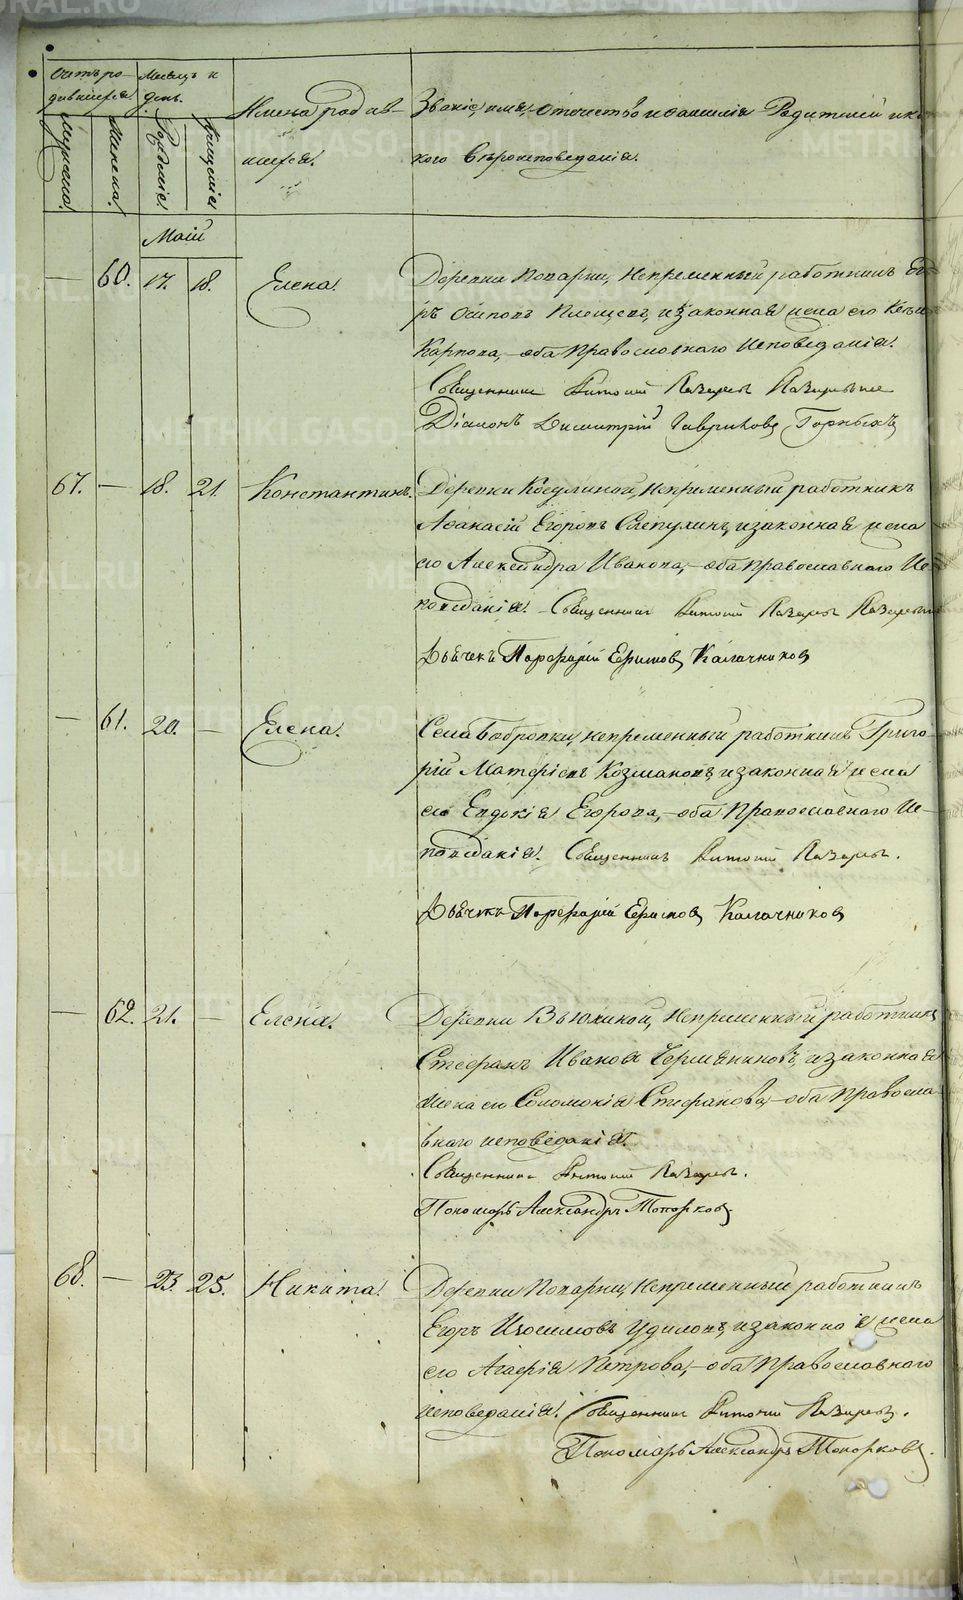 Счетъ ро-
дившихся
Мужеска.
Женска.
Месяцъ и
день.
Рожденія.
Крещенія.
Имена родив-
шихся.
Званіе, имя, отечество и фамилія Родителей и ка-
кого вѣроисповеданія.
Маій
— 60. 17. 18. Елена.
Деревни Поварни, Непременный работникъ
Осиповъ и законная жена его
Карпова, оба Православнаго Исповеданія.
Священникъ Антоній Лазаревъ
Діаконъ Димитрій Гавриловъ Горныхъ
67. — 18. 21. Константинъ.
Деревни Косулиной, Непременный работникъ
Афанасій Егоровъ Слепухинъ, и законная жена
его Александра Иванова, оба Православнаго Ис-
поведанія. Священникъ Антоній Лазаревъ
Дьячекъ Порфирій Ефимовъ Калачниковъ
— 61. 20. — Елена.
Села Бобровки, непременный работникъ Григо-
рій Матфіевъ Козмановъ и законная жена
его Евдокія Егорова, оба Православнаго Ис-
поведанія. Священникъ Антоній Лазаревъ.
Дьячекъ Порфирій Ефимовъ Калачниковъ
— 62. 21. — Елена.
Деревни Вьюхиной, Непременный работникъ
Стефанъ Ивановъ и законная
жена его Соломонія Стефанова, оба Правосла-
внаго исповеданія.
Священникъ Антоній Лазаревъ.
Пономарь Александръ Топорковъ
68. — 23. 25. Никита.
Деревни Поварни, Непременный работникъ
Егоръ Изосимовъ Удиловъ, и законная жена
его Агафія Петрова, оба Православнаго
исповеданія. Священникъ Антоній Лазаревъ.
Пономарь Александръ Топорковъ.
METRIKI.GASO-URAL.RU